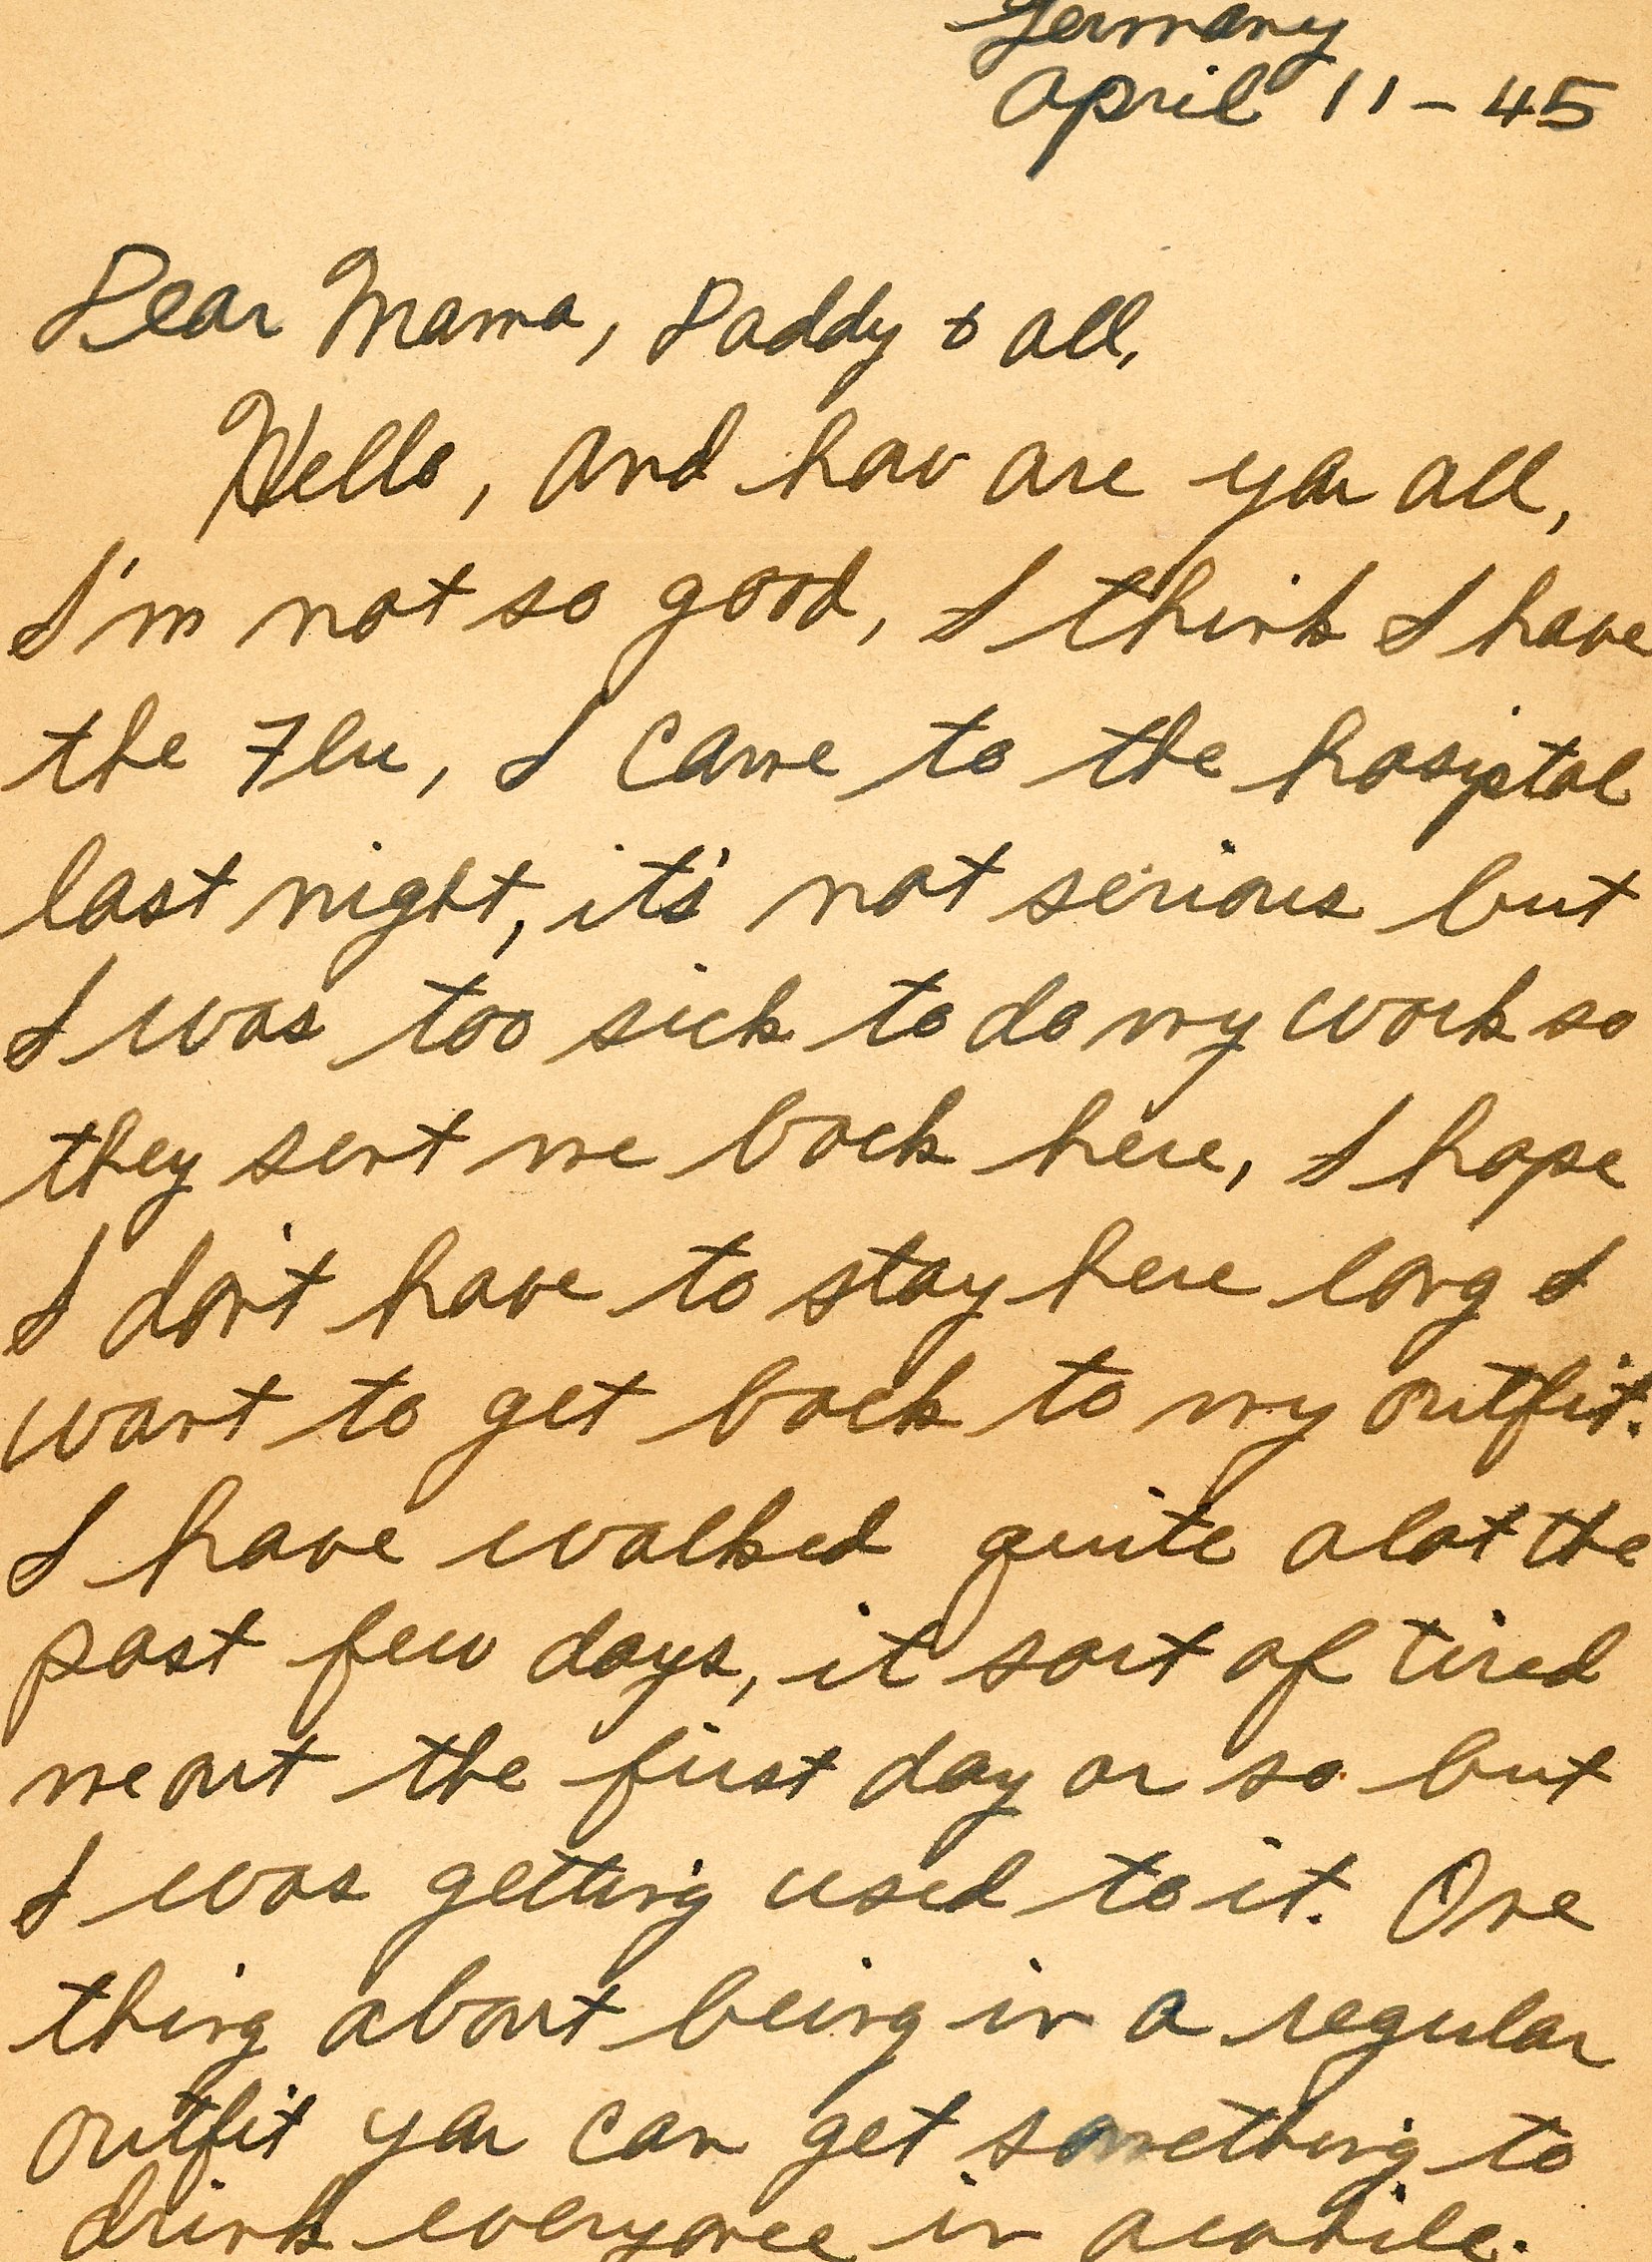 Germany
April 11-45
Dear Mama, Daddy & all,
Hello, and how are you all,
I'm not so good, I think I have
the Flu, I came to the hosiptal
last night, it's not serious but
I was too sick to do my work so
they sent me back here, I hope
I don't have to stay here long I
want to get back to my outfit.
I have walked quite alot the
past few days, it sort of tired
me out the first day or so but
I was getting used to it. One
thing about being in a regular
outfit you can get something to
drink everyonce in awhile.